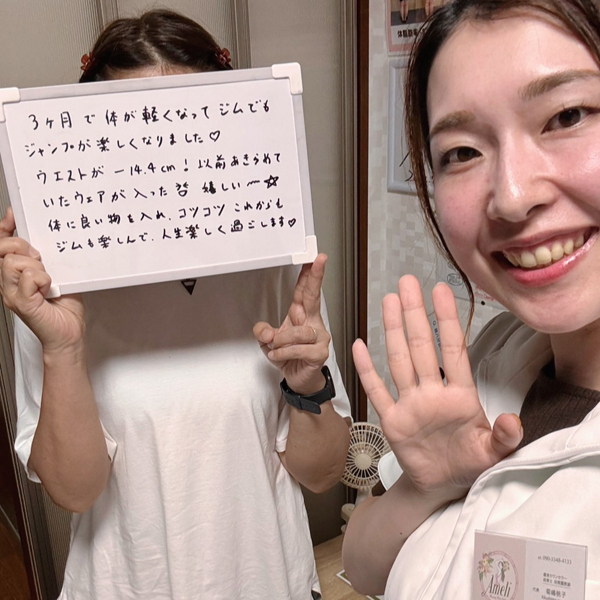 3ヶ月で体が軽くなってジムでも
ジャンプが楽しくなりました♡
ウエストが−14.4cm！以前あきらめて
いたウェアが入った 嬉しい〜☆
体に良い物を入れ、コツコツこれからも
ジムも楽しんで、人生楽しく過ごします♡
Ameli